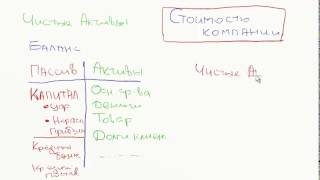 Чистые Активы
Стоимость
компании
Баланс
Пассив Активы
Капитал
• уар
• Нарасп
прибыль
Кредиты
банк
Кредит
постав
Осн ср-ва
Деньги
Товар
Долги клиент
......
Чистые А